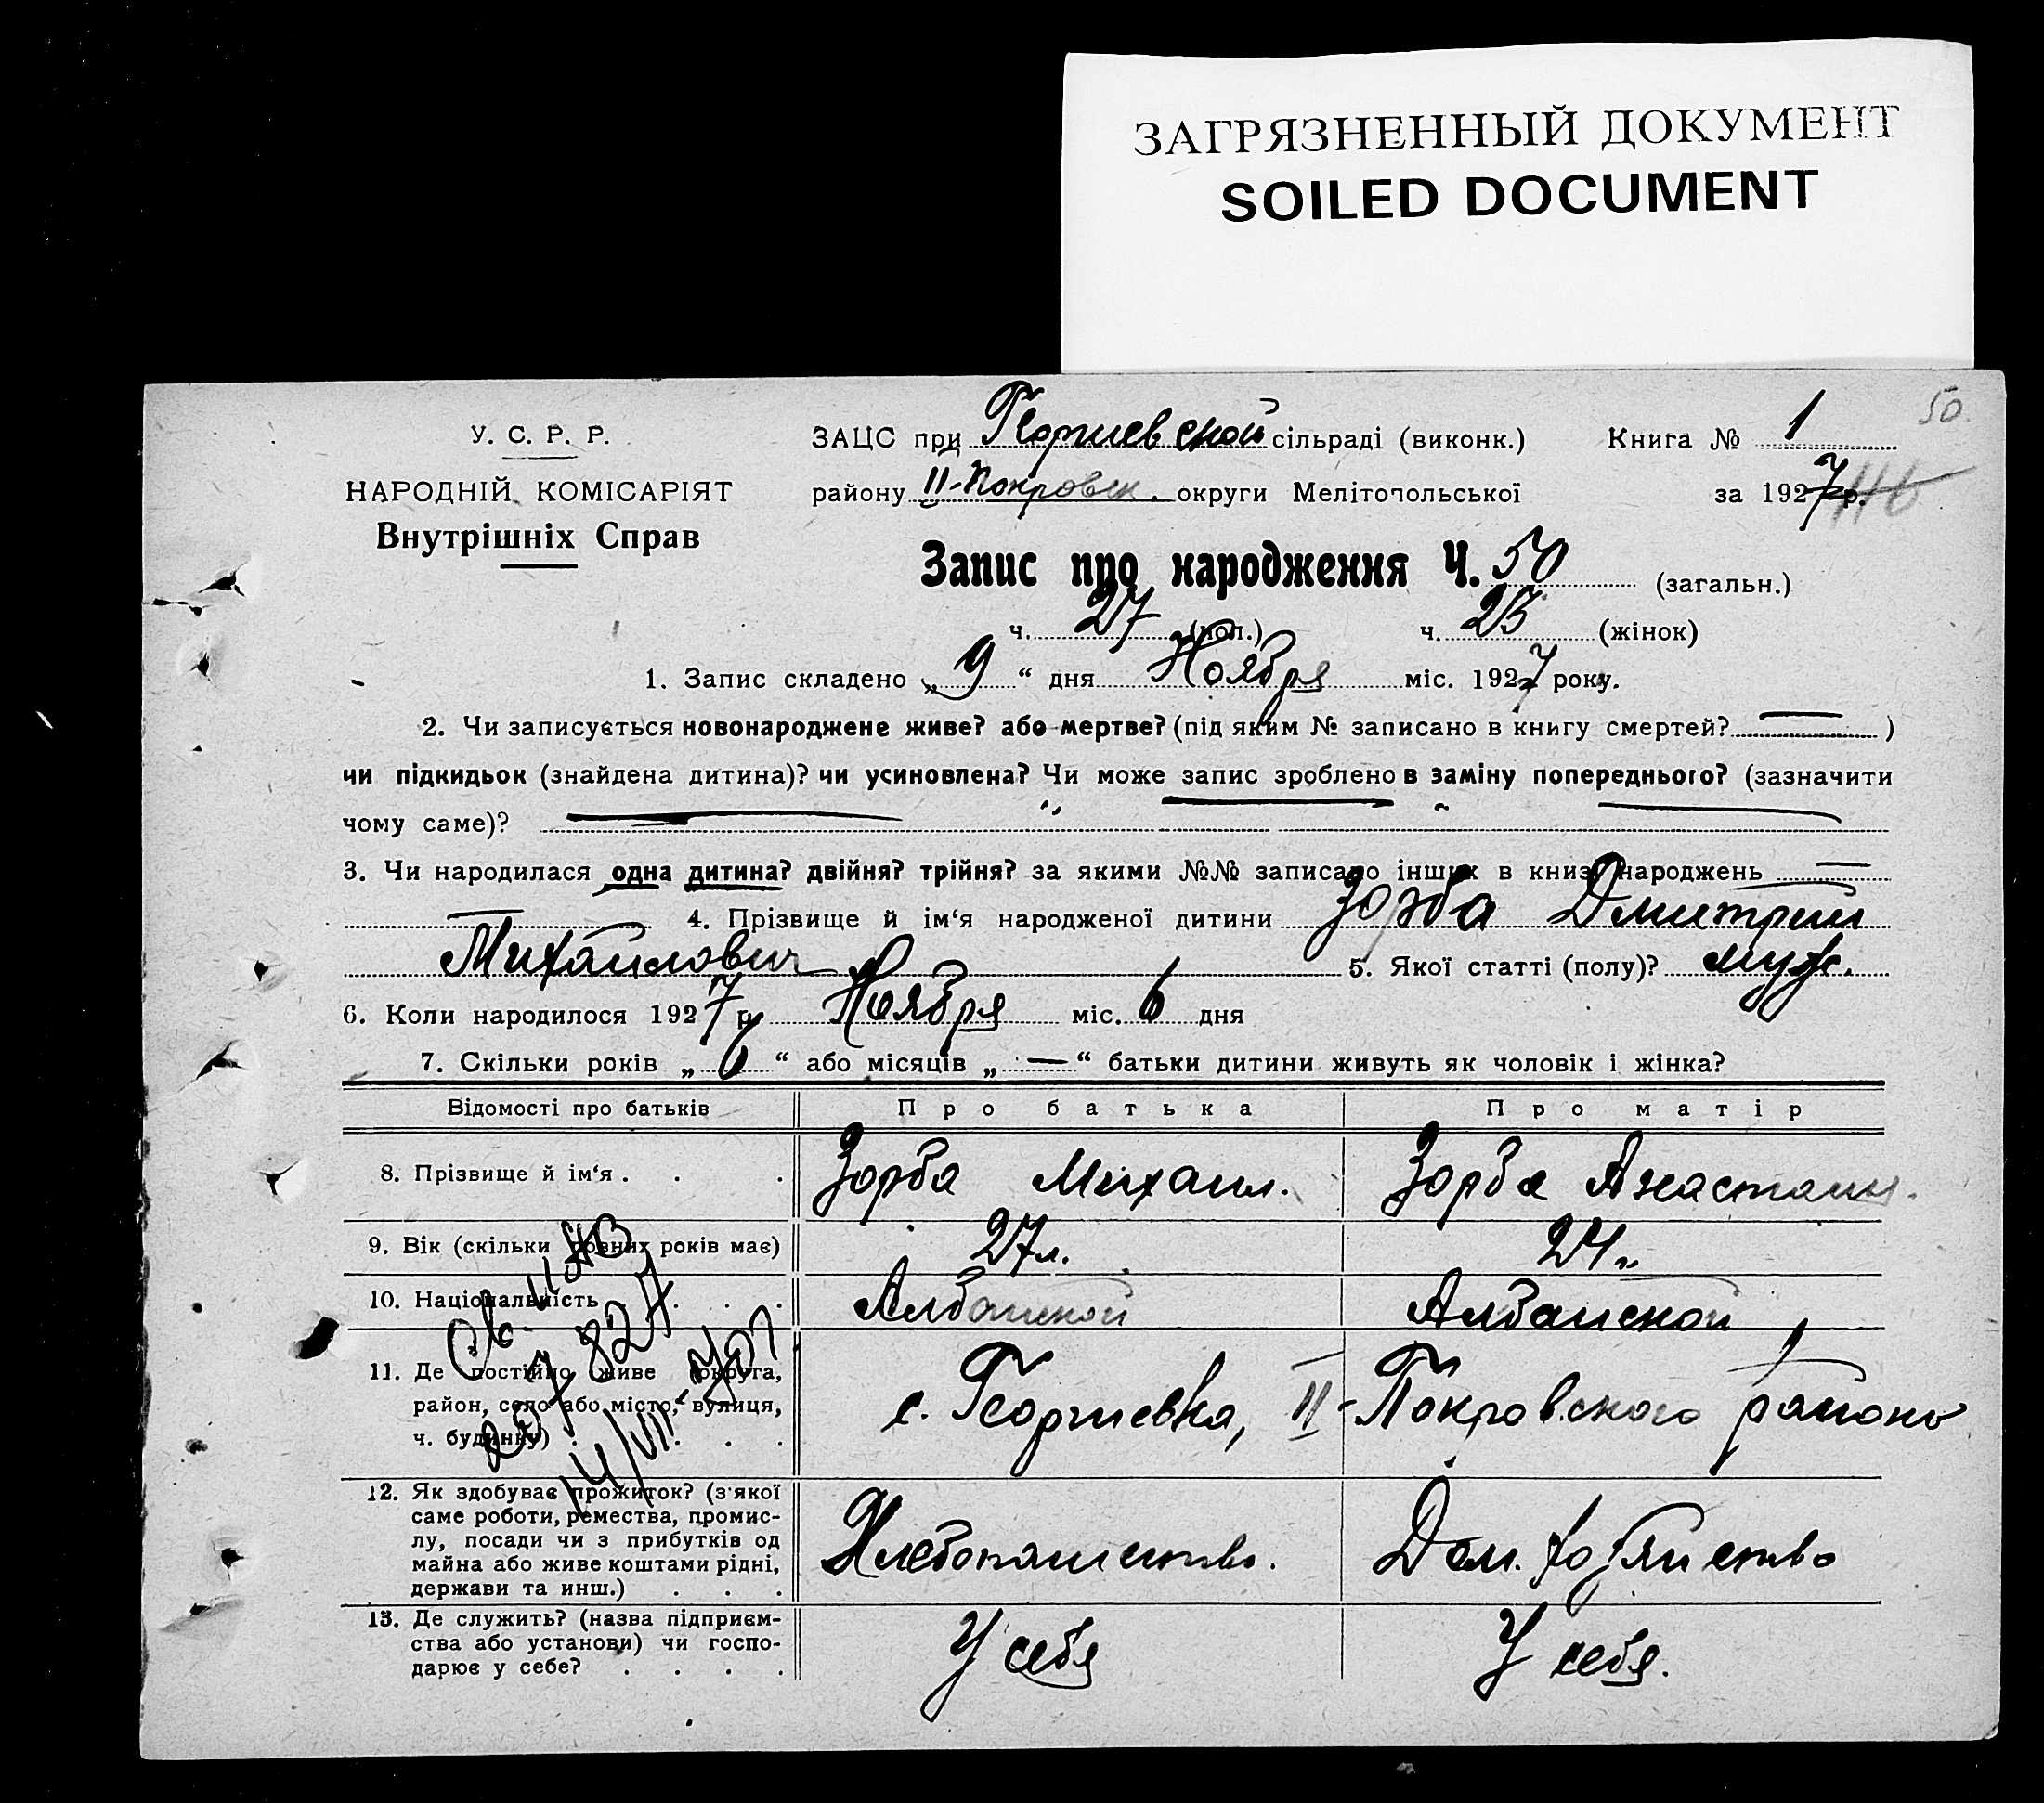 ЗАГРЯЗНЕННЫЙ ДОКУМЕНТ
SOILED DOCUMENT
50.
У. С. Р. Р.
НАРОДНІЙ КОМІСАРІЯТ
Внутрішніх Справ
ЗАЦС при Георгиевской сільраді (виконк.) Книга № 1
району II-Покровск. округи Мелітопольської за 1927 р. 116
Запис про народження Ч. 50 (загальн.)
ч. 27 (чол.) ч. 23 (жінок)
1. Запис складено „ 9 “ дня Ноября міс. 1927 року.
2. Чи записується новонароджене живе? або мертве? (під яким № записано в книгу смертей? — )
чи підкидьок (знайдена дитина)? чи усиновлена? Чи може запис зроблено в заміну попереднього? (зазначити
чому саме)? —
3. Чи народилася одна дитина? двійня? трійня? за якими №№ записано інших в книзі народжень —
— 4. Прізвище й ім‘я народженої дитини Зорба Дмитрий
Михайлович 5. Якої статті (полу)? муж.
6. Коли народилося 1927 р. Ноября міс. 6 дня
7. Скільки років „ 6 “ або місяців „ — “ батьки дитини живуть як чоловік і жінка?
Відомості про батьків Про батька Про матір
8. Прізвище й ім‘я . . . Зорба Михаил. Зорба Анастасия.
9. Вік (скільки повних років має) 27 л. 24 л.
10. Національність . . . . Албанской Албанской
11. Де постійно живе (округа,
район, село або місто, вулиця,
ч. будинку) . . . .
с. Георгиевка, II-Покровского района
12. Як здобуває прожиток? (з‘якої
саме роботи, ремества, промис-
лу, посади чи з прибутків од
майна або живе коштами рідні,
держави та инш.) . . .
Хлебопашество. Дом. хозяйство
13. Де служить? (назва підприєм-
ства або установи) чи госпо-
дарює у себе? . . . .
У себя У себя.